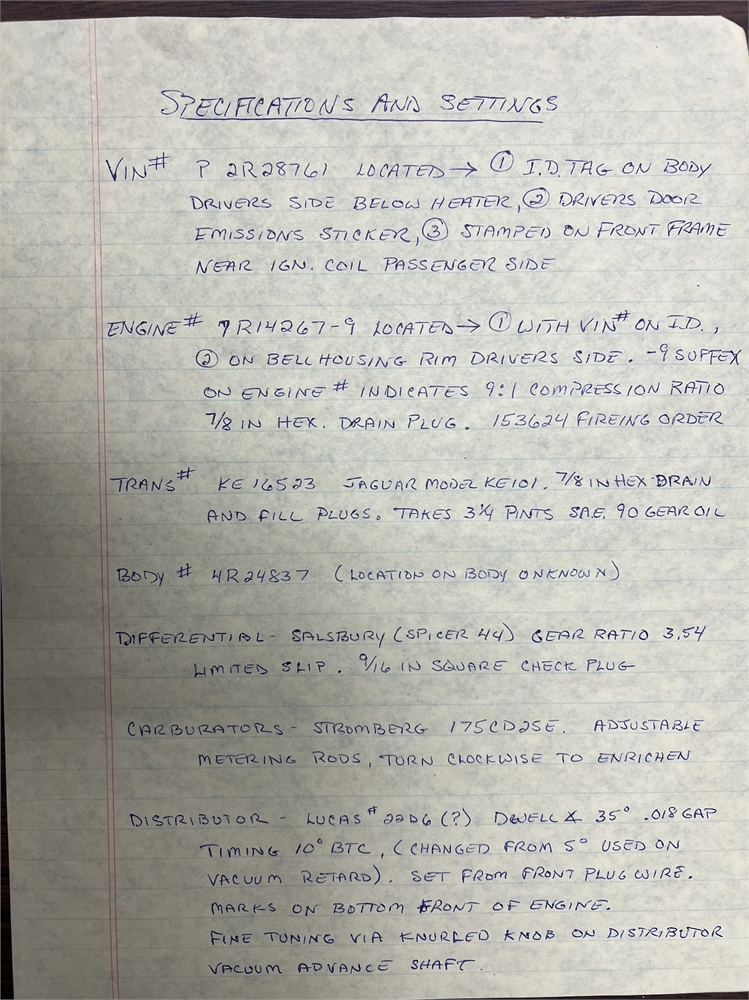 SPECIFICATIONS AND SETTINGS
VIN# P 2R28761 LOCATED → ① I.D. TAG ON BODY
DRIVERS SIDE BELOW HEATER, ② DRIVERS DOOR
EMISSIONS STICKER, ③ STAMPED ON FRONT FRAME
NEAR IGN. COIL PASSENGER SIDE
ENGINE# 7R14267-9 LOCATED → ① WITH VIN# ON I.D.,
② ON BELL HOUSING RIM DRIVERS SIDE. -9 SUFFEX
ON ENGINE # INDICATES 9:1 COMPRESSION RATIO
7/8 IN HEX. DRAIN PLUG. 153624 FIREING ORDER
TRANS# KE 16523 JAGUAR MODEL KE101. 7/8 IN HEX DRAIN
AND FILL PLUGS. TAKES 3 1/4 PINTS SAE. 90 GEAR OIL
BODY # 4R24837 (LOCATION ON BODY ONKNOWN)
DIFFERENTIAL - SALSBURY (SPICER 44) GEAR RATIO 3.54
LIMITED SLIP. 9/16 IN SQUARE CHECK PLUG
CARBURATORS - STROMBERG 175CD2SE. ADJUSTABLE
METERING RODS, TURN CLOCKWISE TO ENRICHEN
DISTRIBUTOR - LUCAS # 22D6 (?) DWELL ∡ 35° .018 GAP
TIMING 10° BTC, (CHANGED FROM 5° USED ON
VACUUM RETARD). SET FROM FRONT PLUG WIRE.
MARKS ON BOTTOM FRONT OF ENGINE.
FINE TUNING VIA KNURLED KNOB ON DISTRIBUTOR
VACUUM ADVANCE SHAFT.